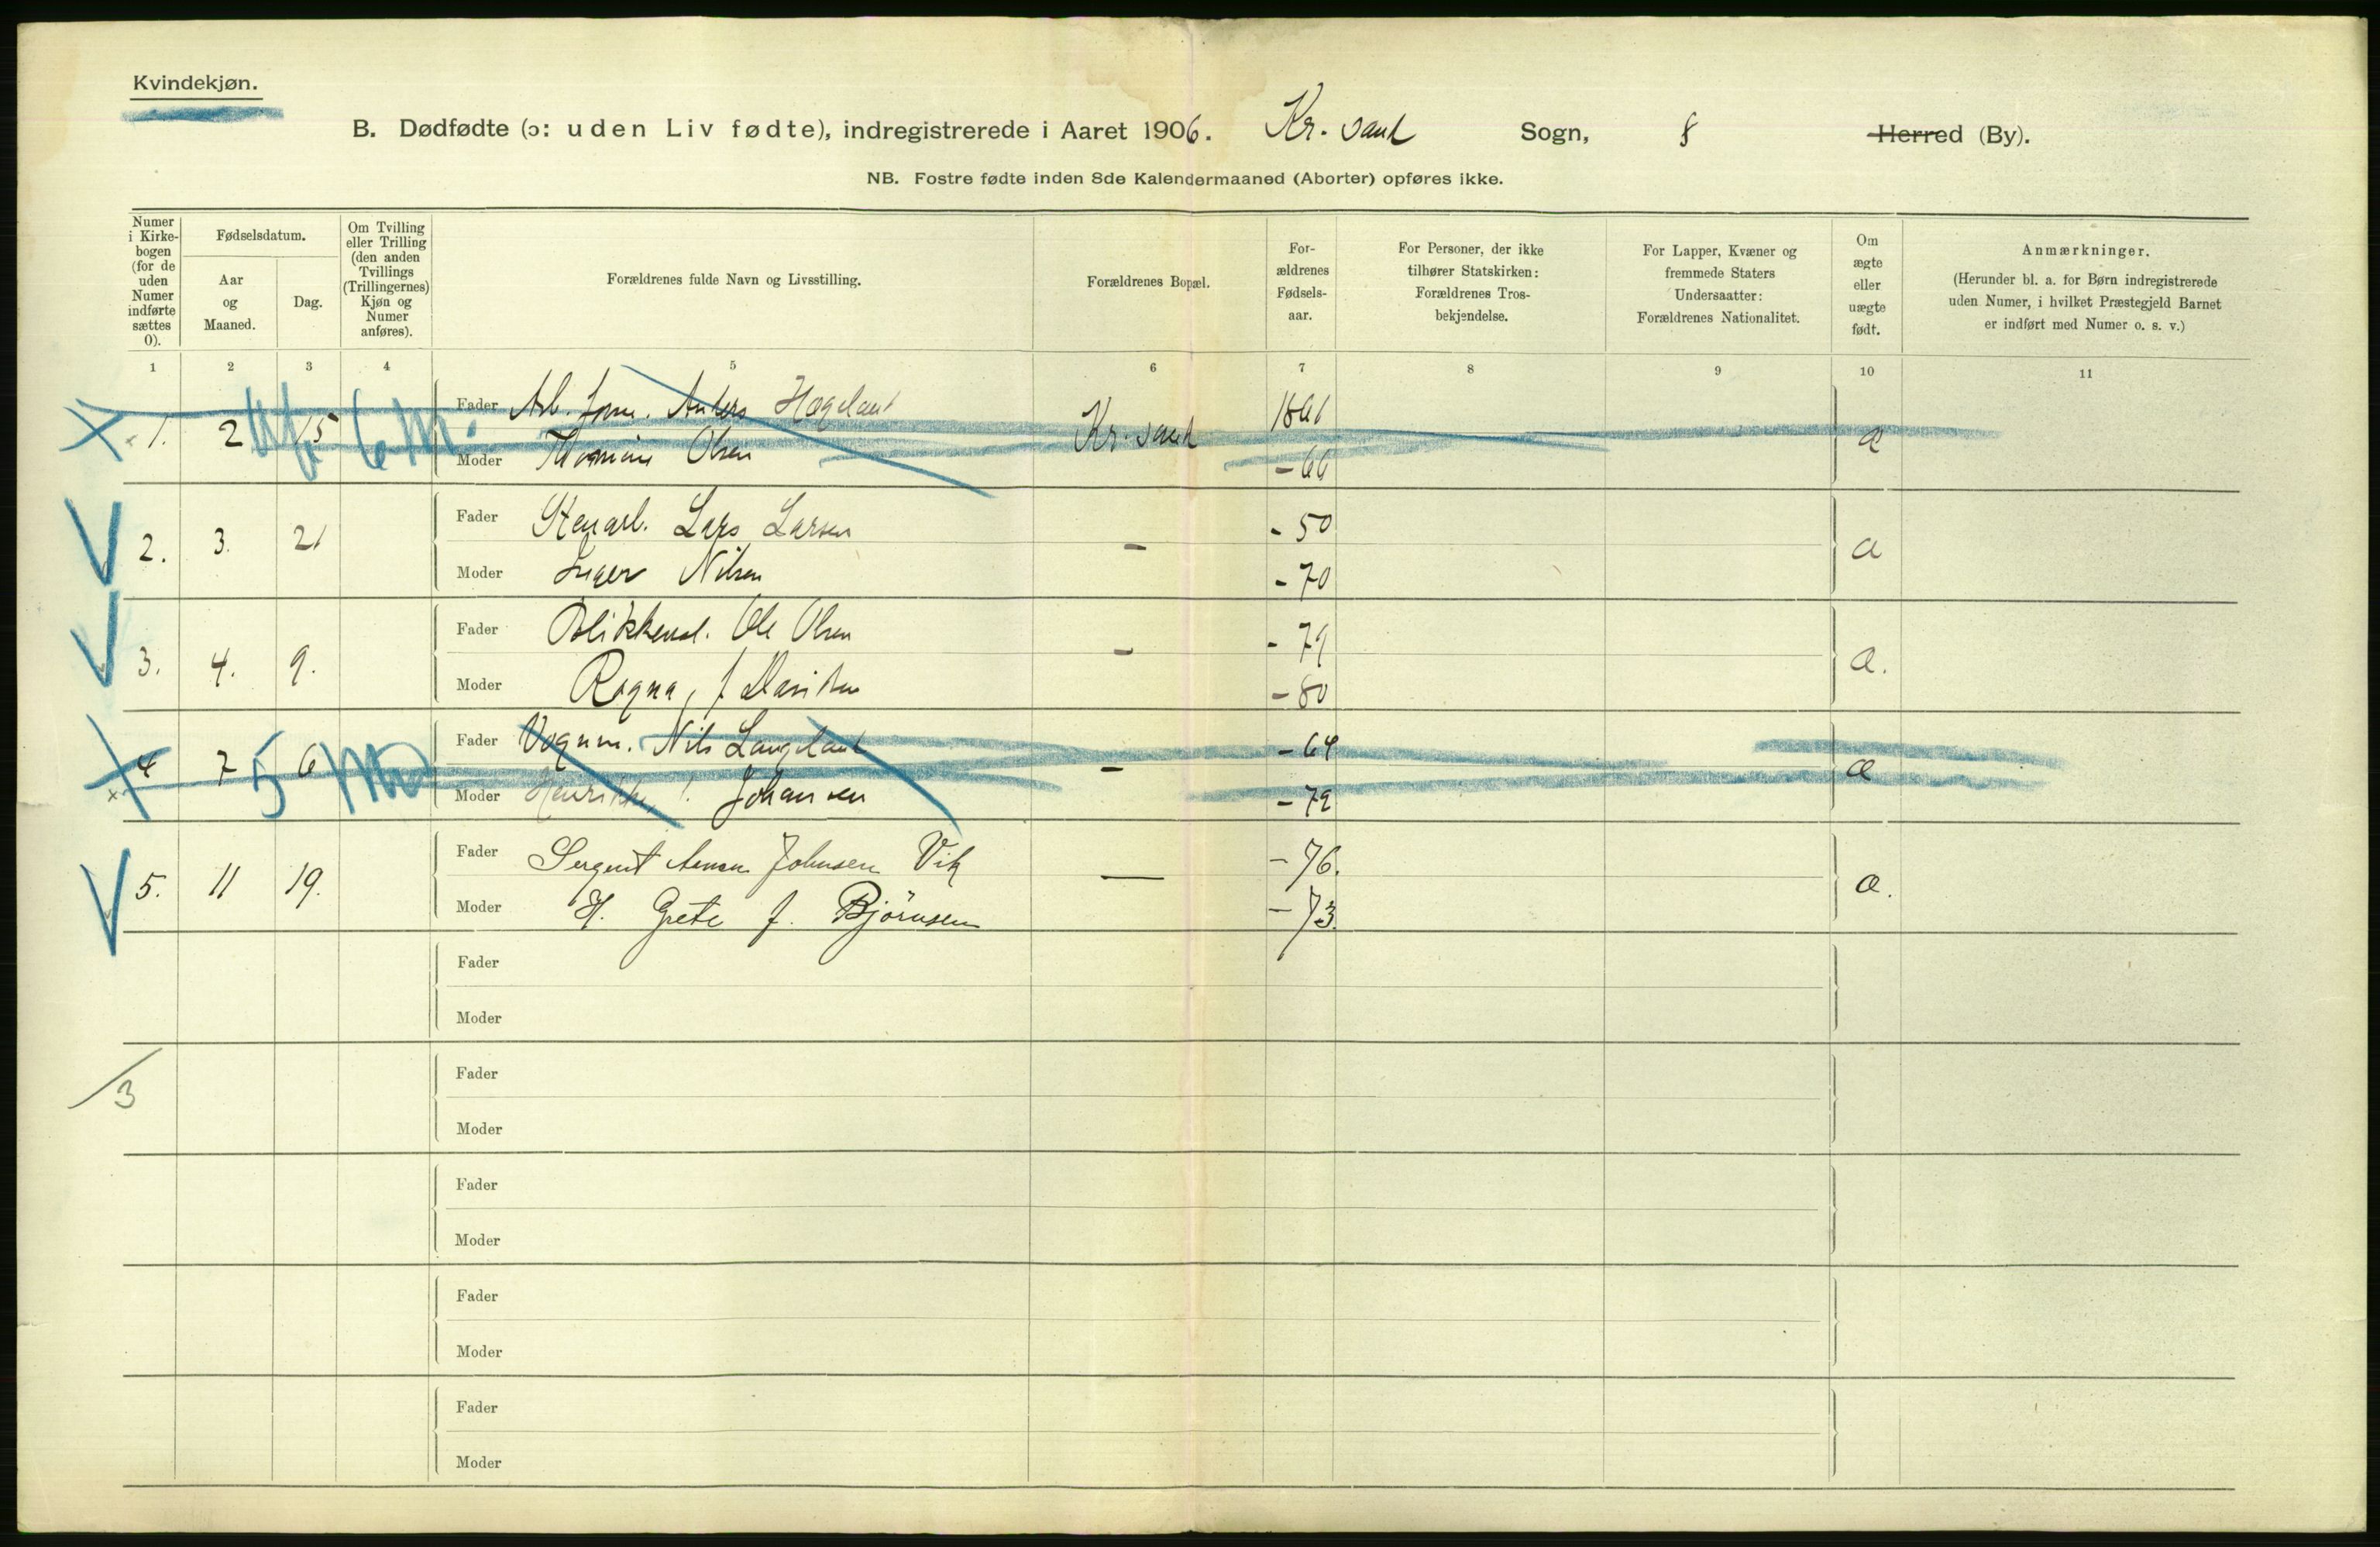 Kvindekjøn.
B. Dødfødte (ɔ: uden Liv fødte), indregistrerede i Aaret 1906. Kr. sand Sogn, 8 Herred (By).
NB. Fostre fødte inden 8de Kalendermaaned (Aborter) opføres ikke.
Numer i Kirke-bogen (for de uden Numer indførte sættes 0).
Fødselsdatum.
Aar og Maaned.
Dag.
Om Tvilling eller Trilling (den anden Tvillings (Trillingernes) Kjøn og Numer anføres).
Forældrenes fulde Navn og Livsstilling.
Forældrenes Bopæl.
For-ældrenes Fødsels-aar.
For Personer, der ikke tilhører Statskirken: Forældrenes Tros-bekjendelse.
For Lapper, Kvæner og fremmede Staters Undersaatter: Forældrenes Nationalitet.
Om ægte eller uægte født.
Anmærkninger.
(Herunder bl. a. for Børn indregistrerede uden Numer, i hvilket Præstegjeld Barnet er indført med Numer o. s. v.)
1 2 3 4 5 6 7 8 9 10 11
1. 2 15 6 M. Fader Arb. form. Anders Høgeland Kr. sand 1861 æ
Moder Olsen - 66
2. 3. 21 Fader Stenarb. Lars Larsen - - 50 æ
Moder Inger Nilsen - 70
3. 4. 9. Fader Blikkensl. Ole Olsen - - 79 æ.
Moder Ragna, f. Davidsen - 80
4 7 5 6 Fader Vognm. Nils Langeland - - 64 æ
Moder Henrikke, f. Johansen - 72
5. 11 19. Fader Sergent Johnsen Vik — - 76. æ.
Moder H. Grete f. Björnsen - 73.
Fader
Moder
3
Fader
Moder
Fader
Moder
Fader
Moder
Fader
Moder